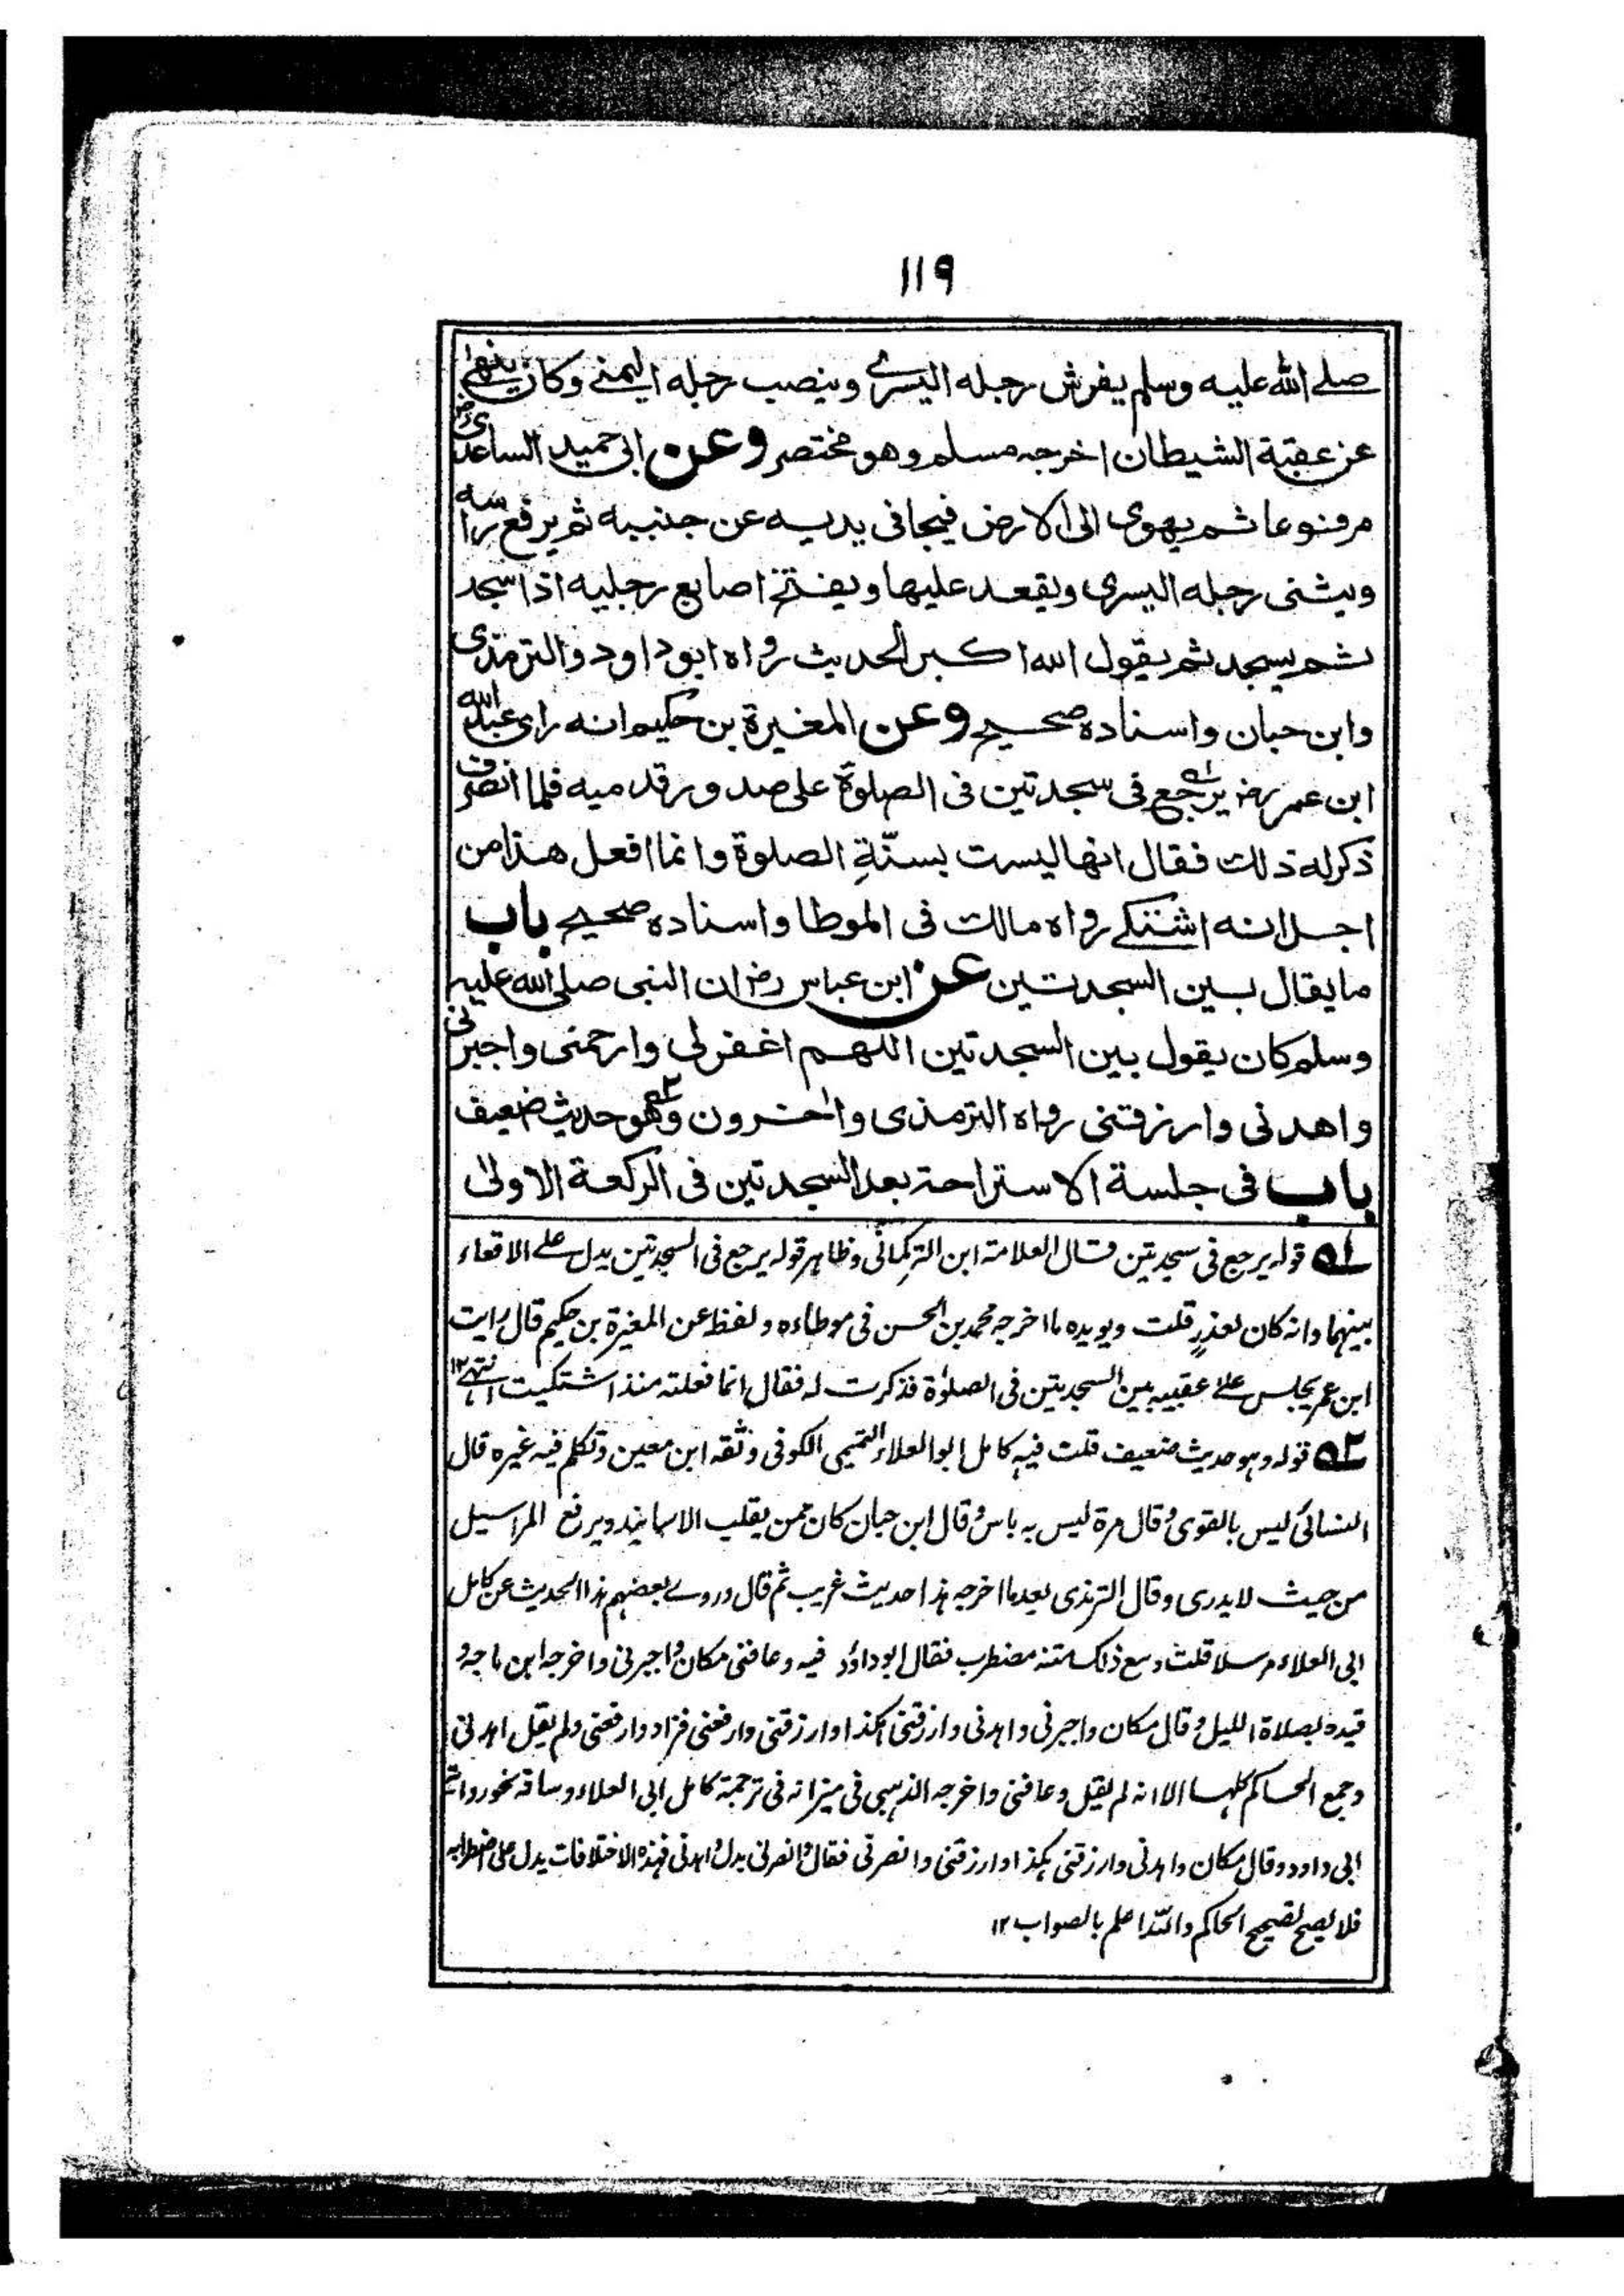 ١١٩
صلے الله عليه وسلم يفرش رجله اليسرے وينصب رجله اليمنے وكان ينهى
عن عقبة الشيطان اخرجه مسلم وهو مختصر وعن ابى حميد الساعدى رض
مرفوعا ثم يهوى الى الارض فيجافى يديه عن جنبيه ثم يرفع راسه
ويثنى رجله اليسرى ويقعد عليها ويفتخ اصابع رجليه اذا سجد
ثم يسجد ثم يقول الله اكبر الحديث رواه ابو داود والترمذى
وابن حبان واسناده صحيح وعن المغيرة بن حكيم انه راى عبد الله
ابن عمر رض يرجع ١ه فى سجدتين فى الصلوة على صدور قدميه فلما انصرف
ذكر له ذلك فقال انها ليست بسنّةِ الصلوة وانما افعل هذا من
اجل انه اشتكے رواه مالك فى الموطا واسناده صحيح باب
ما يقال بين السجدتين عن ابن عباس رض ان النبى صلى الله عليه
وسلم كان يقول بين السجدتين اللهم اغفر لى وارحمنى واجبرنى
واهدنى وارزقنى رواه الترمذى واٰخرون ٢ه وهو حديث ضعيف
باب فى جلسة الاستراحة بعد السجدتين فى الركعة الاولىٰ
١ه قوله يرجع فى سجدتين قال العلامة ابن التركمانى وظاهر قوله يرجع فى السجدتين يدل علے الاقعاء
بينهما وانه كان لعذرٍ قلت ويويده ما اخرجه محمد بن الحسن فى موطاءه ولفظه عن المغيرة بن حكيم قال رايت
ابن عمر يجلس علے عقبيه بين السجدتين فى الصلوٰة فذكرت له فقال انما فعلته منذ اشتكيت انتهے ١٢
٢ه قوله وهو حديث ضعيف قلت فيه كامل ابو العلاء التميمى الكوفى وثقه ابن معين وتكلم فيه غيره قال
النسائى ليس بالقوى وقال مرة ليس به باس وقال ابن حبان كان ممن يقلب الاسانيد ويرفع المراسيل
من حيث لا يدرى وقال الترمذى بعد ما اخرجه هذا حديث غريب ثم قال وروے بعضهم هذا الحديث عن كامل
ابى العلاء مرسلا قلت ومع ذلك متنه مضطرب فقال ابو داؤد فيه وعافنى مكان واجبرنى واخرجه ابن ماجه و
قيده بصلاة الليل وقال مكان واجبرنى واهدنى وارزقنى هكذا وارزقنى وارفعنى فزاد وارفعنى ولم يقل اهدنى
وجمع الحاكم كلها الا انه لم يقل وعافنى واخرجه الذهبى فى ميزانه فى ترجمة كامل ابى العلاء وساقه نحو رواية
ابى داود وقال مكان واهدنى وارزقنى هكذا وارزقنى وانصرنى فقال وانصرنى بدل واهدنى فهذه الاختلافات يدل على اضطرابه
فلا يصح تصحيح الحاكم والله اعلم بالصواب ١٢